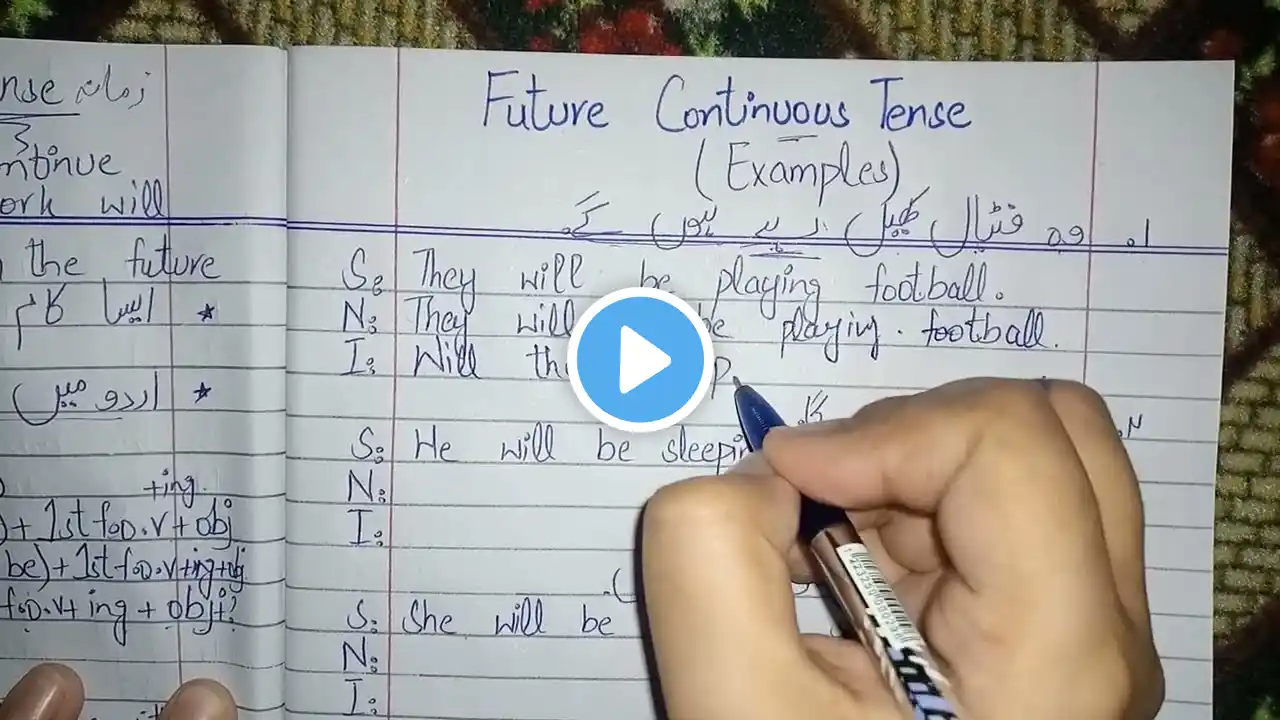 nse زمانہ
ntinue
ork will
the future
ایسا کام ★
اردو میں ★
+ing.
) + 1st fo☐.v + obj
be) + 1st fo☐.v+ing+obj
fo☐.v+ ing + obj?
Future Continuous Tense
(Examples)
1. وہ فٹبال کھیل رہے ہوں گے۔
S: They will be playing football.
N: They will be playing. football.
I: Will the p
N.
S: He will be sleepin
N:
I:
S: She will be
N:
I: